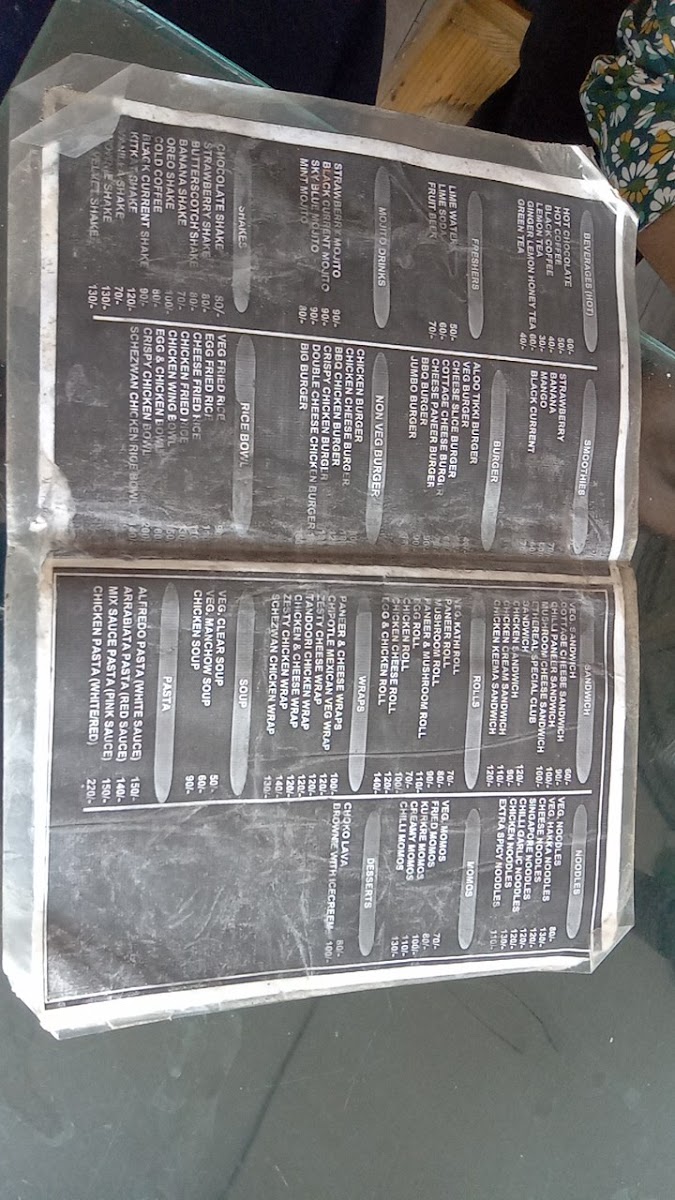 BEVERAGES (HOT)
HOT CHOCOLATE 60/-
HOT COFFEE 50/-
BLACK COFFEE 40/-
LEMON TEA 30/-
GINGER LEMON HONEY TEA 60/-
GREEN TEA 40/-
FRESHERS
LIME WATER 50/-
LIME SODA 60/-
FRUIT BEER 70/-
MOJITO DRINKS
STRAWBERRY MOJITO 90/-
BLACK CURRENT MOJITO 90/-
SKY BLUE MOJITO 90/-
MINT MOJITO 80/-
SHAKES
CHOCOLATE SHAKE 80/-
STRAWBERRY SHAKE 80/-
BUTTERSCOTCH SHAKE 80/-
BANANA SHAKE 70/-
OREO SHAKE 100/-
COLD COFFEE 80/-
BLACK CURRENT SHAKE 90/-
KITKAT SHAKE 120/-
VANILLA SHAKE 70/-
SHAKE 130/-
SHAKE 130/-
SMOOTHIES
STRAWBERRY
BANANA
MANGO
BLACK CURRENT
BURGER
ALOO TIKKI BURGER
VEG BURGER
CHEESE SLICE BURGER
COTTAGE CHEESE BURGER
CHEESE PANEER BURGER
BBQ BURGER
JUMBO BURGER
NON VEG BURGER
CHICKEN BURGER
CHICKEN CHEESE BURGER
BBQ CHICKEN BURGER
CRISPY CHICKEN BURGER
DOUBLE CHEESE CHICKEN BURGER
BIG BURGER
RICE BOWL
VEG FRIED RICE
EGG FRIED RICE
CHEESE FRIED RICE
CHICKEN FRIED RICE
CHICKEN WING BOWL
EGG & CHICKEN BOWL
CRISPY CHICKEN BOWL
SCHEZWAN CHICKEN RICE BOWL
SANDWICH
VEG. SANDWICH 60/-
COTTAGE CHEESE SANDWICH 90/-
CHILLI PANEER SANDWICH 100/-
MUSHROOM CHEESE SANDWICH 100/-
ETHEREAL SPECIAL CLUB
SANDWICH 120/-
CHICKEN SANDWICH 90/-
CHICKEN CREAM SANDWICH 110/-
CHICKEN KEEMA SANDWICH 120/-
ROLLS
VEG KATHI ROLL 70/-
PANEER ROLL 80/-
MUSHROOM ROLL 90/-
PANEER & MUSHROOM ROLL 110/-
EGG ROLL 70/-
CHICKEN ROLL 100/-
CHICKEN CHEESE ROLL 120/-
EGG & CHICKEN ROLL 140/-
WRAPS
PANEER & CHEESE WRAPS 100/-
CHIPOTLE MEXICAN VEG WRAP 120/-
ZESTY CHEESE WRAP 120/-
TANDOORI CHICKEN WRAP 120/-
CHICKEN & CHEESE WRAP 120/-
ZESTY CHICKEN WRAP 140/-
SCHEZWAN CHICKEN WRAP 130/-
SOUP
VEG. CLEAR SOUP 50/-
VEG. MANCHOW SOUP 60/-
CHICKEN SOUP 90/-
PASTA
ALFREDO PASTA (WHITE SAUCE) 150/-
ARRABIATA PASTA (RED SAUCE) 140/-
MIX SAUCE PASTA (PINK SAUCE) 150/-
CHICKEN PASTA (WHITE/RED) 220/-
NOODLES
VEG. NOODLES 80/-
VEG. HAKKA NOODLES 110/-
CHEESE NOODLES 130/-
SINGAPORE NOODLES 120/-
CHILLI GARLIC NOODLES 120/-
CHICKEN NOODLES 130/-
EXTRA SPICY NOODLES 110/-
MOMOS
VEG. MOMOS 70/-
FRIED MOMOS 80/-
KURKRE MOMOS 100/-
CREAMY MOMOS 110/-
CHILLI MOMOS 130/-
DESSERTS
CHOKO LAVA 80/-
BROWNIE WITH ICECREEM 100/-